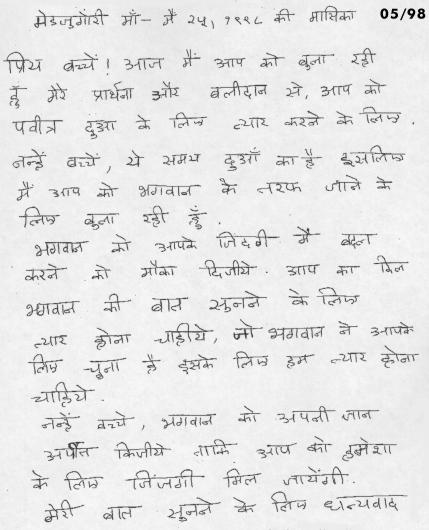 मेडजुगोरी माँ - मै २५, १९९८ की मासिका 05/98
प्रिय बच्चें! आज मैं आप को बुला रही
हुँ मेरे प्रार्थना और बलीदान से, आप को
पवीत्र दुआ के लिए त्यार करने के लिए.
नन्हें बच्चें, ये समय दुआँ का है इसलिए
मैं आप को भगवान के तरफ जाने के
लिए बुला रही हुँ.
भगवान को आपके जिंदगी मैं बदल
करने को मौका दिजीये. आप का दिल
भगवान की बात सुनने के लिए
त्यार होना चाहीये, जो भगवान ने आपके
लिए चुना है इसके लिए हम त्यार होना
चाहिये.
नन्हें बच्चे, भगवान को अपनी जान
अर्पीत किजीये ताकि आप को हमेशा
के लिए जिंजगी मिल जायेंगी.
मेरी बात सुनने के लिए धन्यवाद